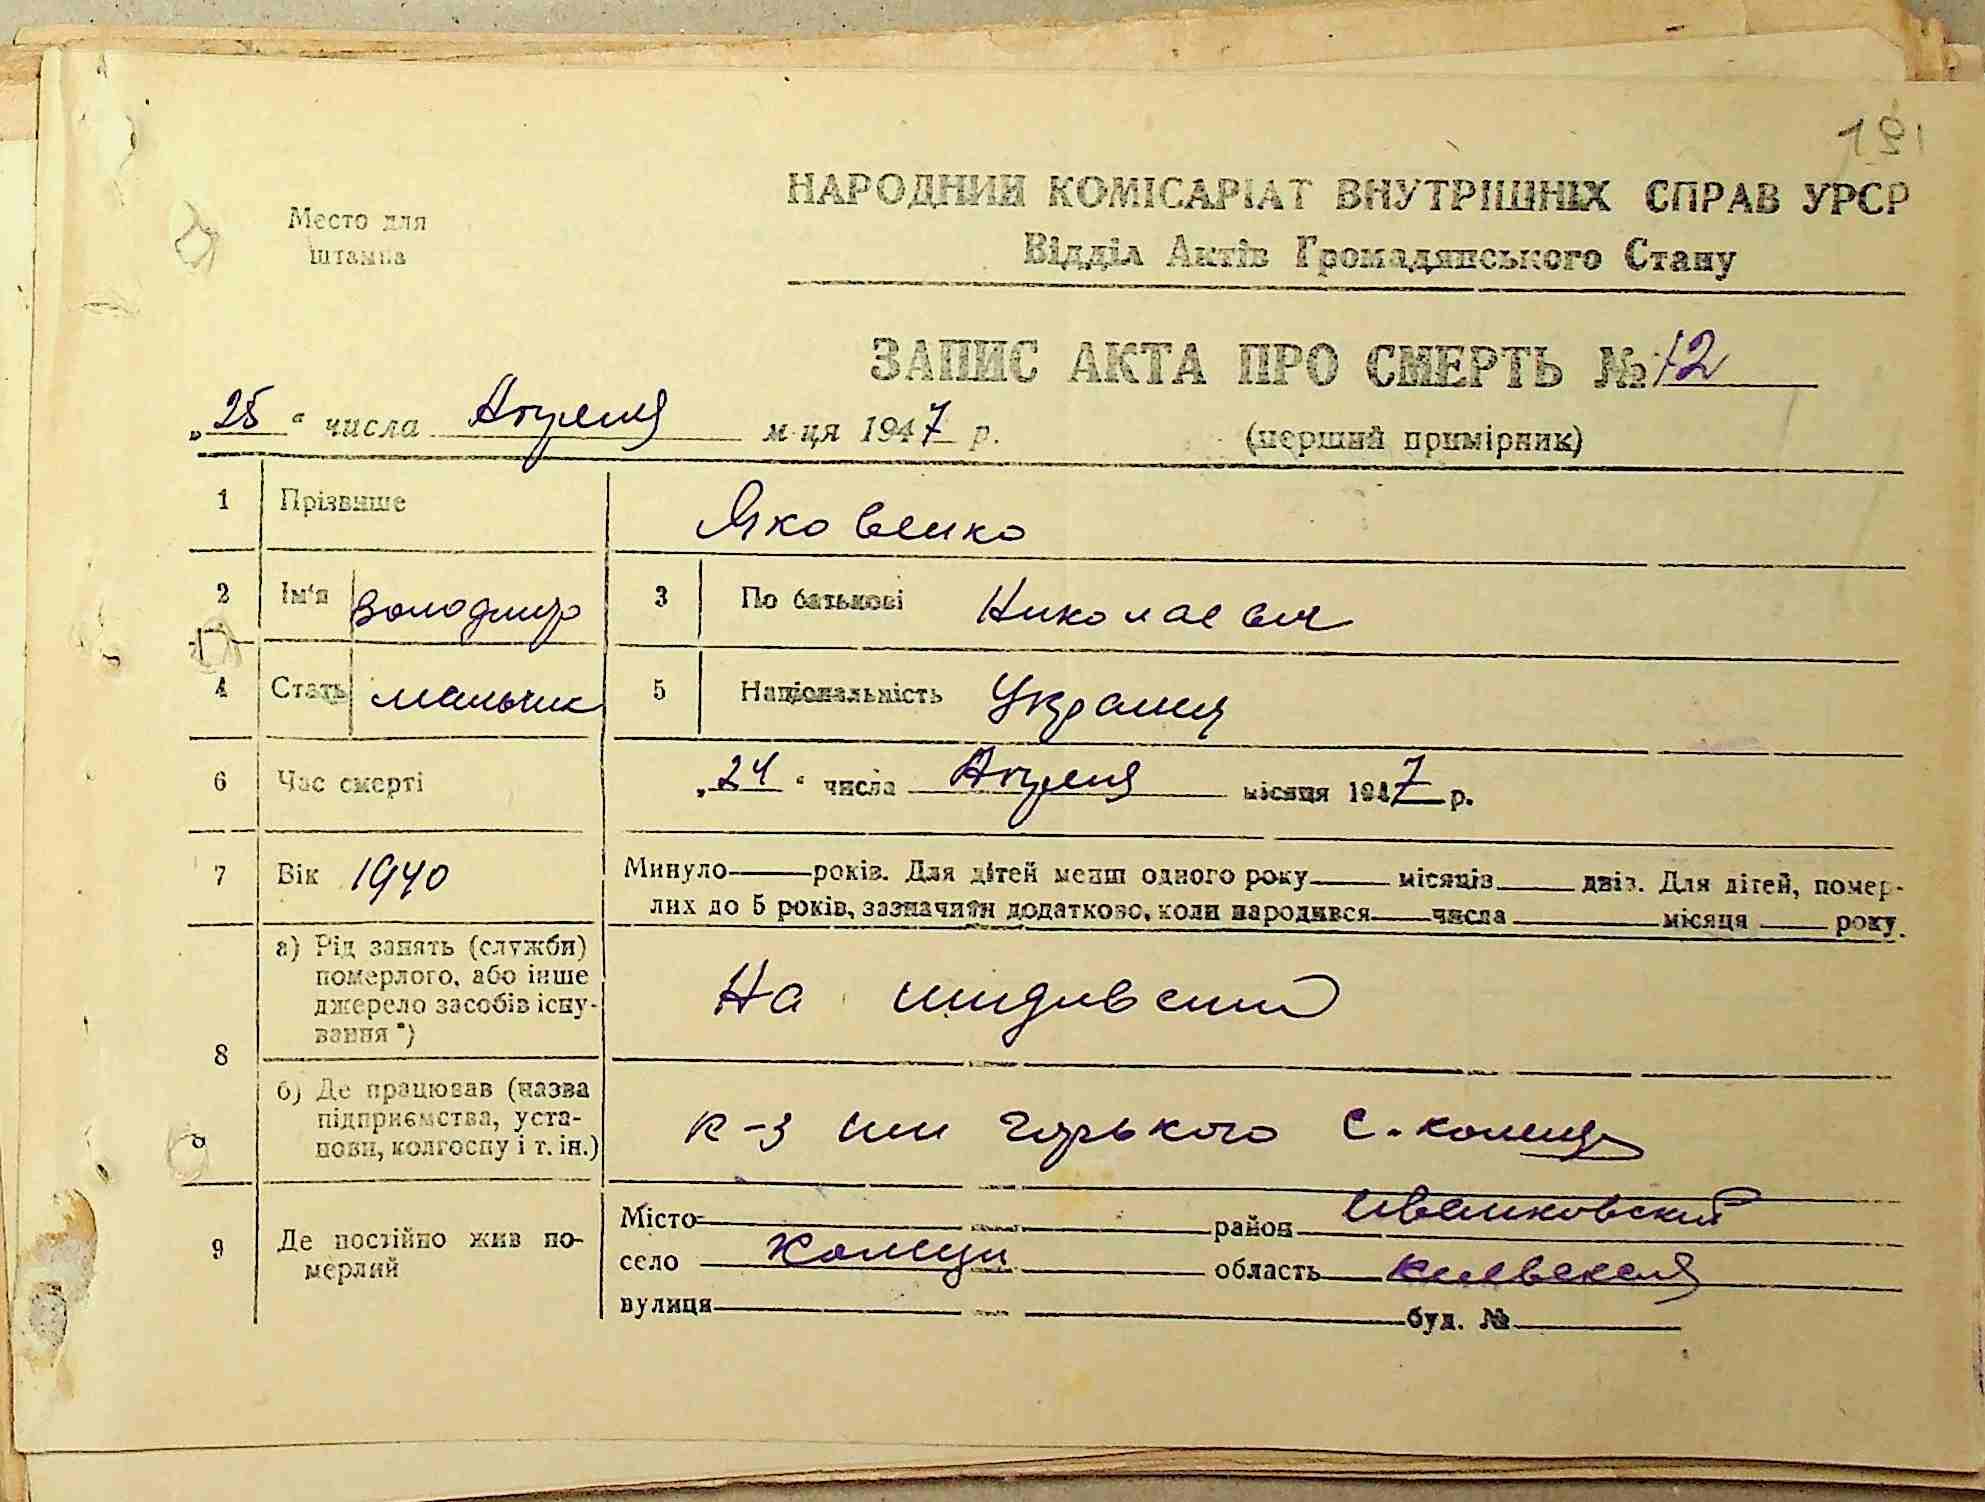 191
Место для
штампа
НАРОДНИЙ КОМІСАРІАТ ВНУТРІШНІХ СПРАВ УРСР
Відділ Актів Громадянського Стану
ЗАПИС АКТА ПРО СМЕРТЬ № 12
„25“ числа Апреля м-ця 1947 р. (перший примірник)
1 Прізвище Яковенко
2 Ім'я Володимир 3 По батькові Николаевич
4 Стать мальчик 5 Національність
6 Час смерті „24“ числа Апреля місяця 1947 р.
7 Вік 1940 Минуло років. Для дітей менш одного року місяців днів. Для дітей, помер-
лих до 5 років, зазначити додатково, коли народився числа місяця року.
8 а) Рід занять (служби)
померлого, або інше
джерело засобів існу-
вання*)
На иждивении
б) Де працював (назва
підприємства, уста-
нови, колгоспу і т. ін.)
к-з им Горького с.
9 Де постійно жив по-
мерлий
Місто район Иванковский
село область Киевская
вулиця буд. №